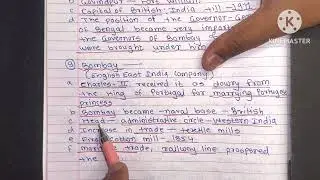 b Govindpur - Fort William.
Capital of British India till - 1911
d The position of the Governor-
of Bengal became very import
the Governors of Bombay
were brought under him
KINEMASTER
② Bombay
(English East India Company)
a Charles-II received it as dowry from
the king of Portugal for marrying Portugese
princess
b Bombay became naval base - British
c Head - administrative circle - Western India
d Increase in trade - textile mills
e First cotton mill - 1854
f trade, railway line prospered
the